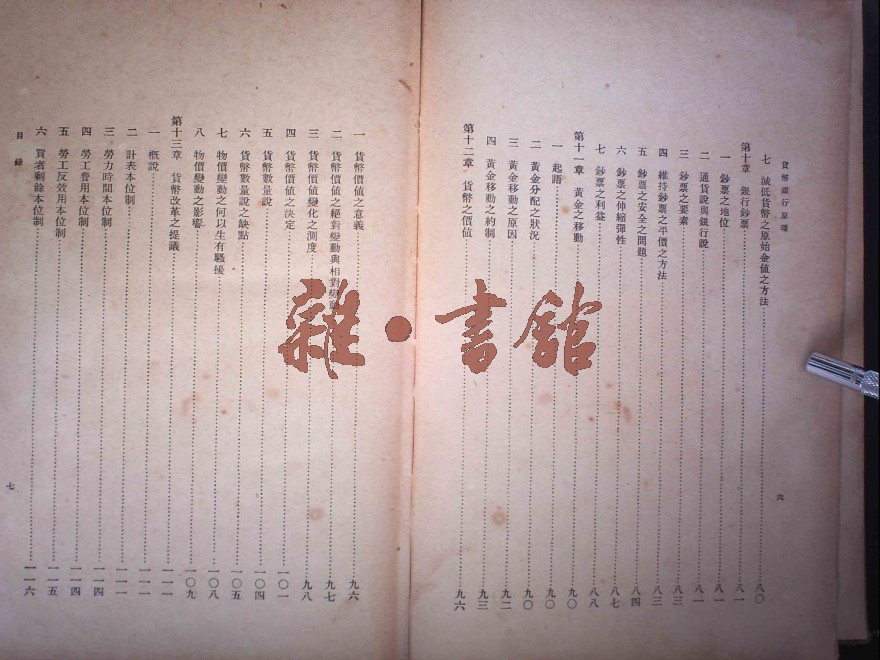 貨幣銀行原理
七 減低貨幣之原始金值之方法……八〇
第十章 銀行鈔票……八一
一 鈔票之地位……八一
二 通貨說與銀行說……八一
三 鈔票之要素……八三
四 維持鈔票之平價之方法……八三
五 鈔票之安全之問題……八四
六 鈔票之伸縮彈性……八七
七 鈔票之利益……八八
第十一章 黃金之移動……九〇
一 起語……九〇
二 黃金分配之狀況……九〇
三 黃金移動之原因……九二
四 黃金移動之約制……九三
第十二章 貨幣之價值……九六
六
一 貨幣價值之意義……九六
二 貨幣價值之絕對變動與相對變動……九七
三 貨幣價值變化之測度……九八
四 貨幣價值之決定……一〇一
五 貨幣數量說……一〇四
六 貨幣數量說之缺點……一〇五
七 物價變動之何以生有騷擾……一〇八
八 物價變動之影響……一〇九
第十三章 貨幣改革之提議……一一一
一 概說……一一一
二 計表本位制……一一一
三 勞力時間本位制……一一四
四 勞工費用本位制……一一四
五 勞工反效用本位制……一一五
六 買者剩餘本位制……一一六
目錄
七
雜·書館